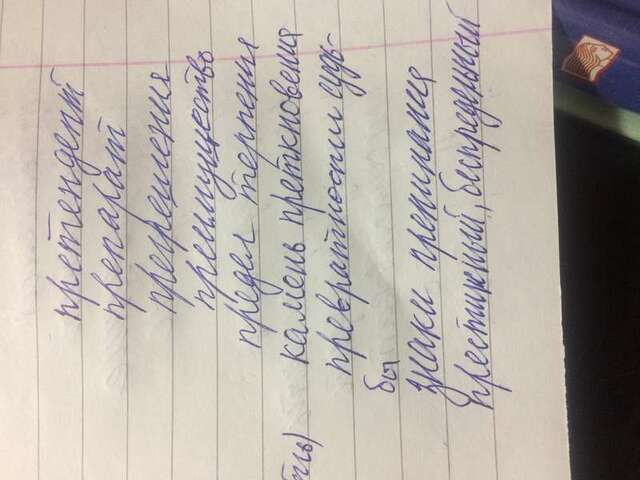 претендент
препарат
прегрешения
преимущество
предел терпенья
ть) камень преткновения
превратности судь-
бы
знаки препинания
престижный, беспределенный